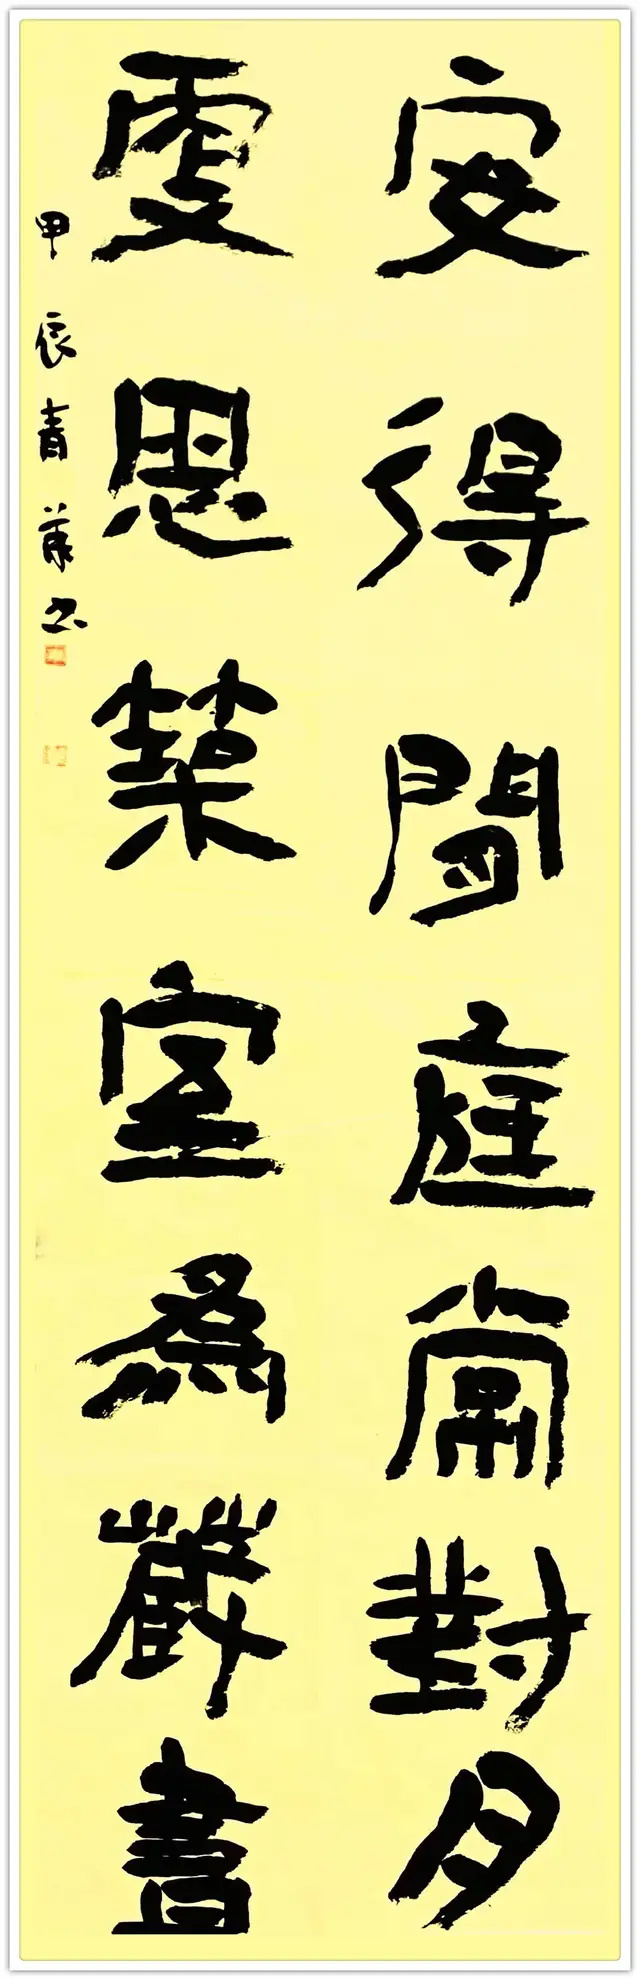 安得閒庭常對月
更思築室為藏書
甲辰青书